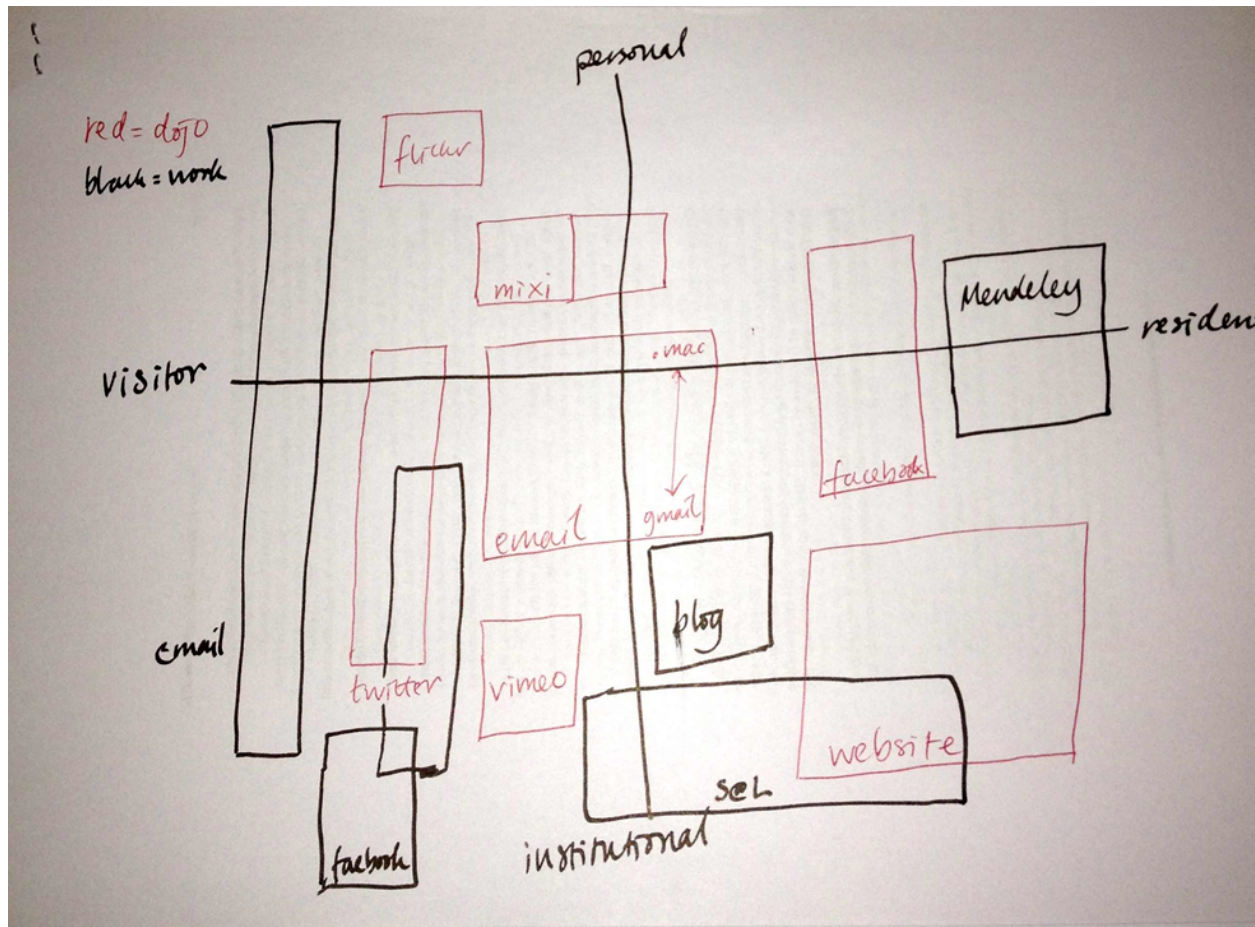 personal
red = dojo
black = work
flickr
mixi
Mendeley
residen
.mac
visitor
facebook
gmail
email
blog
email
twitter
vimeo
website
S@L
institutional
facbook